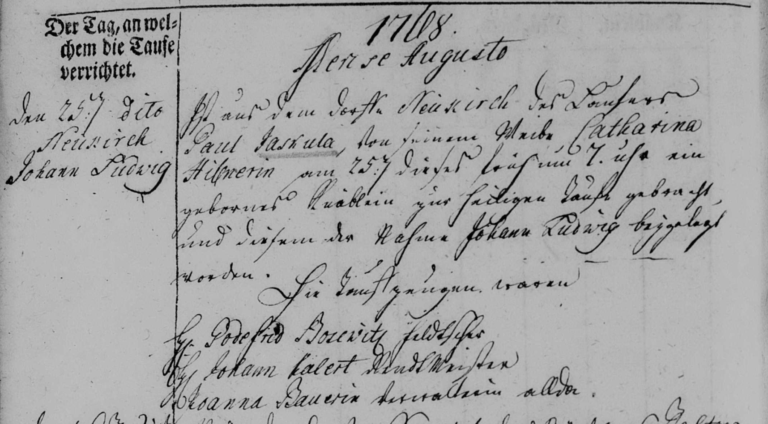 Der Tag, an wel-
chem die Taufe
verrichtet.
1768.
Mense Augusto
den 25:t dito
Neukirch
Johann Ludwig
Ist aus dem dorffe Neukirch des Bauers
Paul Jaskula, von seinem Weibe Catharina
Hilnerin am 25:t dieses früh um 7. uhr ein
gebornes Knäblein zur heiligen Tauffe gebracht,
und diesem der Nahme Johann Ludwig beygelegt
worden.
Die Tauffzeugen waren
H. Godefrid Bosewitz Feldtscher
H. Johann Kalert Rendtmeister
Joanna Bauerin Verwalterin allda.